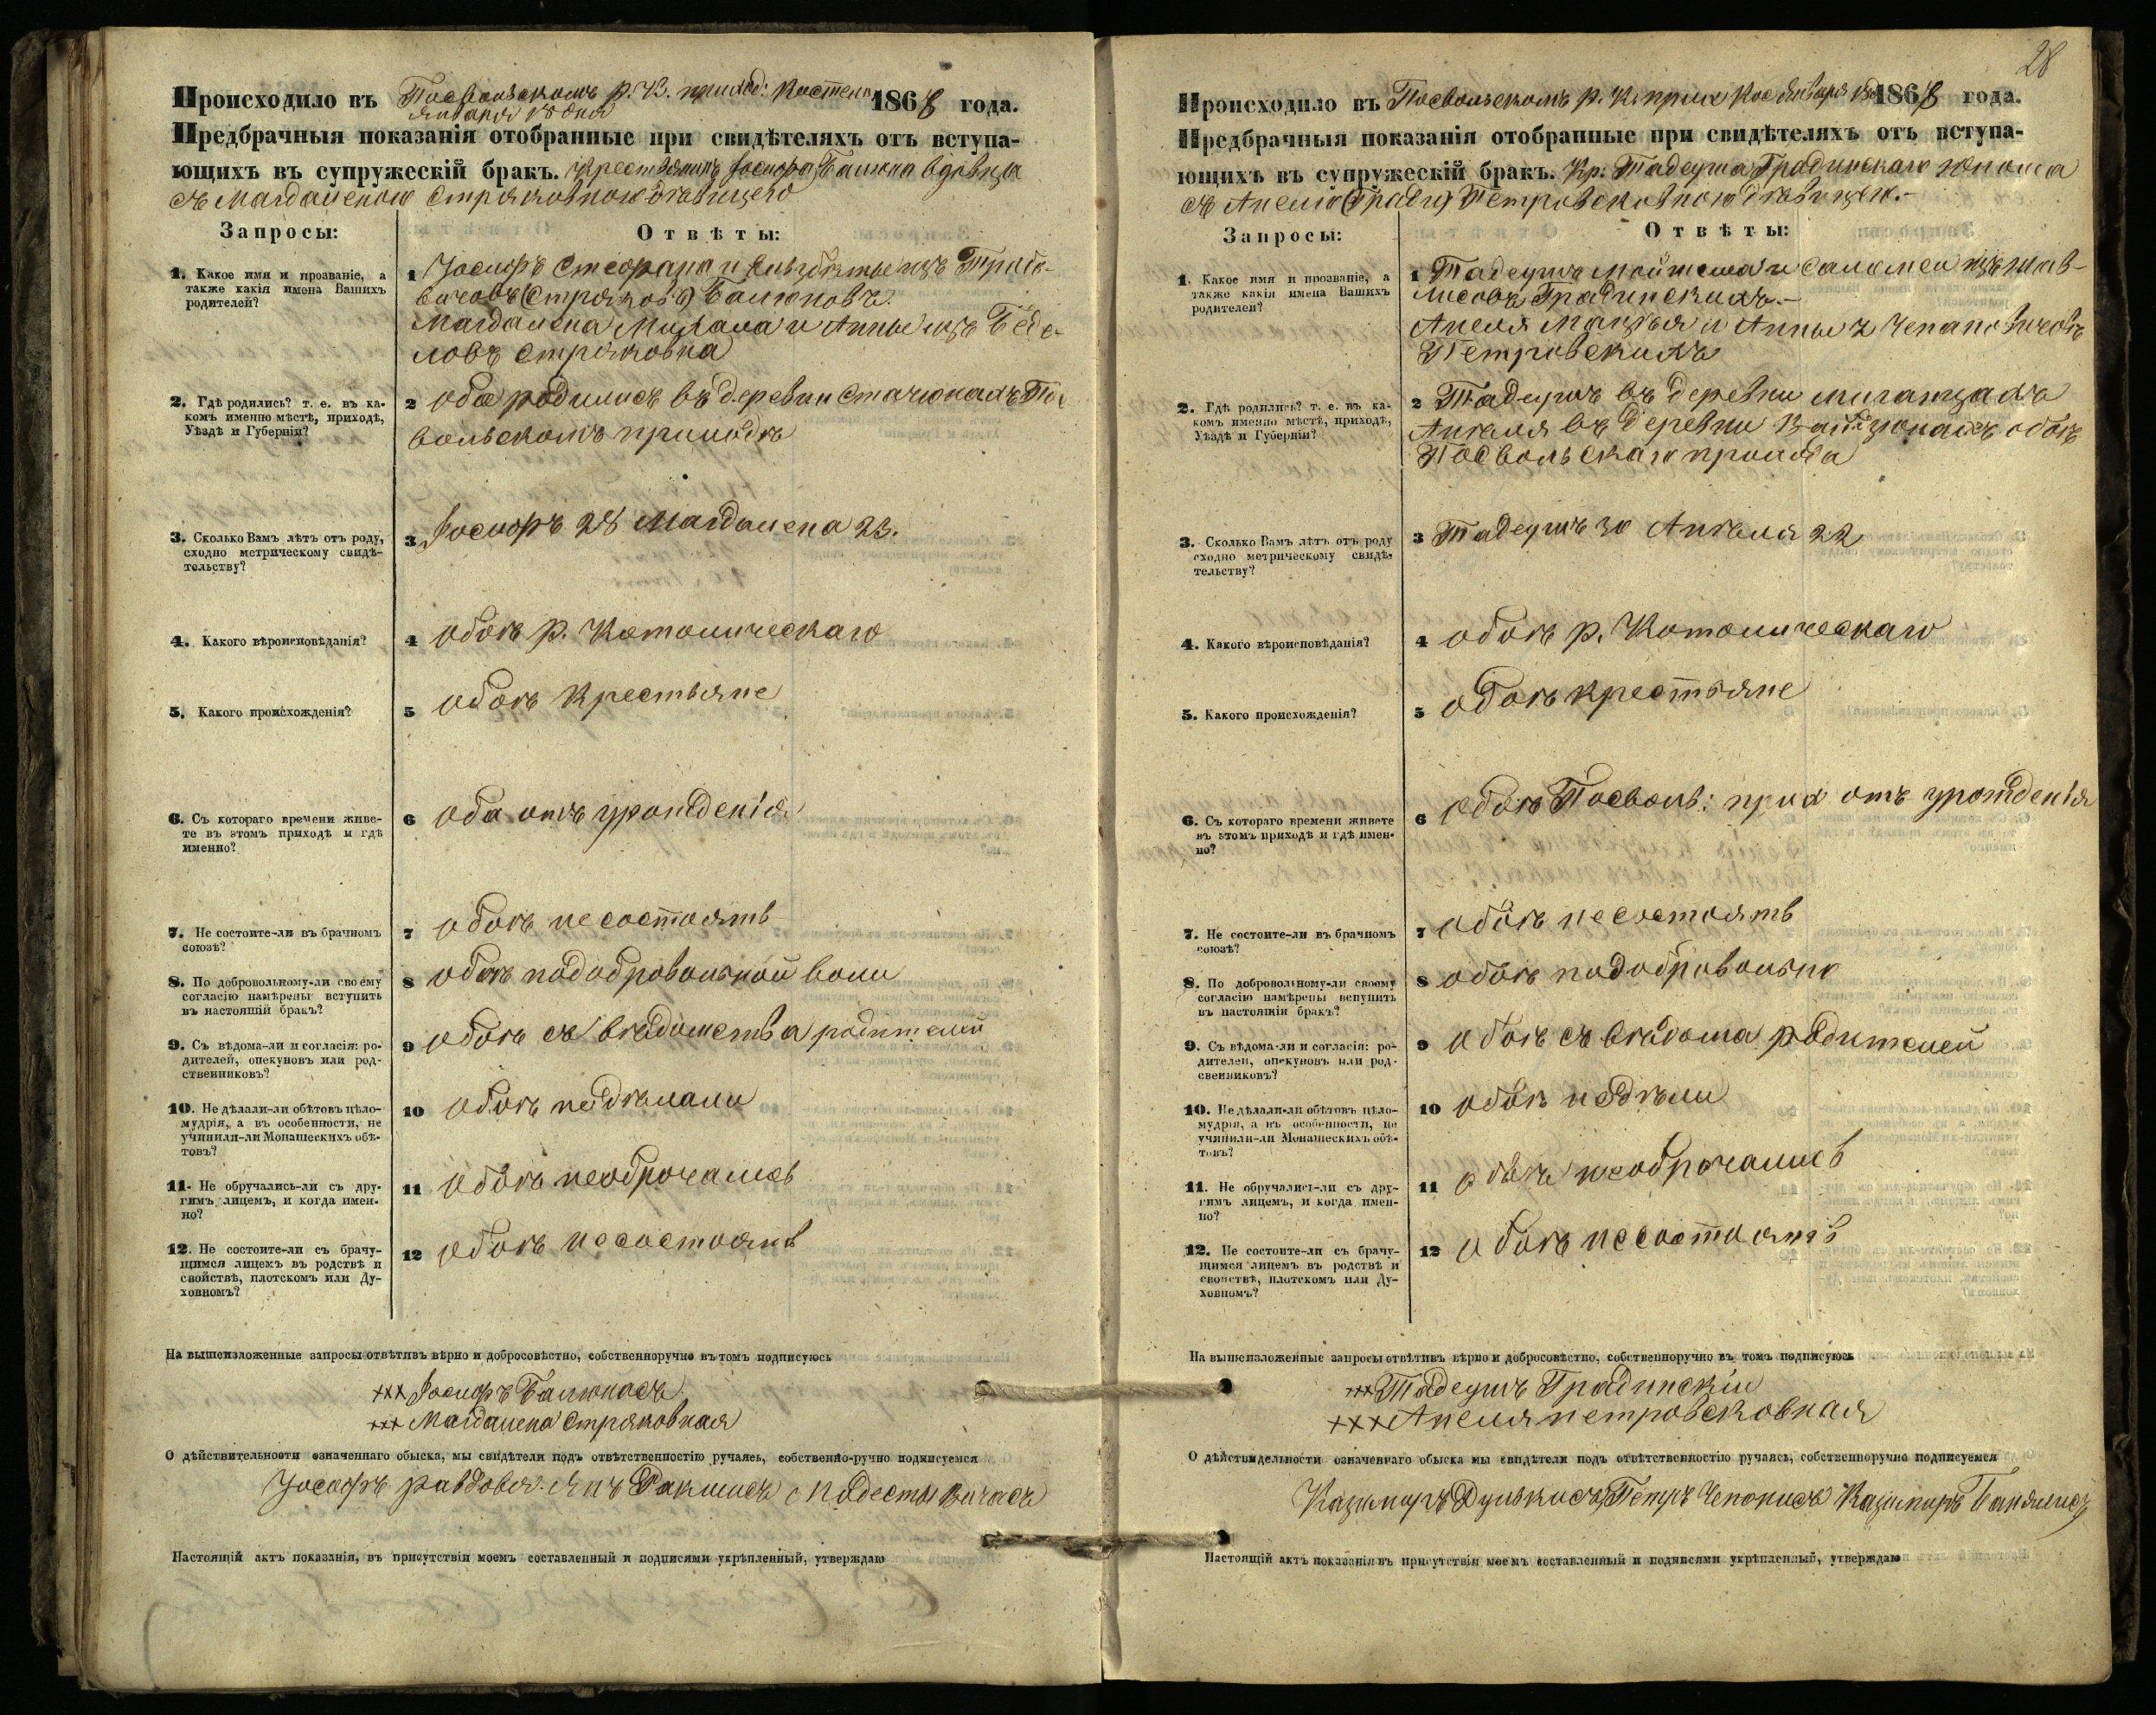 Происходило въ Посвольскомъ р. К. приход: Костели 1868 года.
Января 18 дня
Предбрачныя показанія отобранные при свидѣтеляхъ отъ вступа-
ющихъ въ супружескій бракъ. Іосифа Балюна вдовца
съ Магдаленою Стряковною дѣвицею
Запросы:
Отвѣты:
1. Какое имя и прозваніе, а
также какія имена Вашихъ
родителей?
1 Іосифъ Стефана и Елисабеты изъ
Балюновъ.
Магдалена Михала и Анны изъ
Стряковна
2. Гдѣ родились? т. е. въ ка-
комъ именно мѣстѣ, приходѣ,
Уѣздѣ и Губерніи?
2 оба родились въ деревни Стачюнахъ Пос
вольскомъ приходѣ
3. Сколько Вамъ лѣтъ отъ роду,
сходно метрическому свидѣ-
тельству?
3 Іосифъ 28 Магдалена 23.
4. Какого вѣроисповѣданія?
4 обоѣ р. Католическаго
5. Какого происхожденія?
5 обоѣ крестьяне
6. Съ котораго времени живе-
те въ этомъ приходѣ и гдѣ
именно?
6 оба отъ урожденія
7. Не состоите-ли въ брачномъ
союзѣ?
7 обоѣ несостоятъ
8. По добровольному-ли своему
согласію намѣрены вступить
въ настоящій бракъ?
8 обоѣ подобровольной воли
9. Съ вѣдома-ли и согласія: ро-
дителей, опекуновъ или род-
ственниковъ?
9 обоѣ съ вѣдомства родителей
10. Не дѣлали-ли обѣтовъ цѣло-
мудрія, а въ особенности, не
учинили-ли Монашескихъ обѣ-
товъ?
10 обоѣ недѣлали
11. Не обручались-ли съ дру-
гимъ лицемъ, и когда имен-
но?
11 обоѣ необрочались
12. Не состоите-ли съ брачу-
щимся лицемъ въ родствѣ и
свойствѣ, плотскомъ или Ду-
ховномъ?
12 обоѣ несостоятъ
На вышеизложенные запросы отвѣтивъ вѣрно и добросовѣстно, собственноручно въ томъ подписуюсь
+++ Іосифъ Балюнасъ
+++ Магдалена Стряковная
О дѣйствительности означеннаго обыска, мы свидѣтели подъ отвѣтственностію ручаясь, собственно-ручно подписуемся
Іосифъ Янъ
Настоящій актъ показанія, въ присутствіи моемъ составленный и подписями укрѣпленный, утверждаю
28
Происходило въ Посвольскомъ р. К. прих Кос Января 18 1868 года.
Предбрачныя показанія отобранные при свидѣтеляхъ отъ вступа-
ющихъ въ супружескій бракъ. Кр. Тадеуша Градинскаго юноша
съ Анелю Петровсковною дѣвицею.-
Запросы:
Отвѣты:
1. Какое имя и прозваніе, а
также какія имена Вашихъ
родителей?
1 Тадеушъ и Саломеи изъ
Градинскихъ.-
Анеля Мацѣя и Анны
Петровскихъ
2. Гдѣ родились? т. е. въ ка-
комъ именно мѣстѣ, приходѣ,
Уѣздѣ и Губерніи?
2 Тадеушъ въ деревни
Ангеля въ деревни обоѣ
Посвольскаго прихода
3. Сколько Вамъ лѣтъ отъ роду
сходно метрическому свидѣ-
тельству?
3 Тадеушъ 30 Ангеля 22
4. Какого вѣроисповѣданія?
4 обоѣ р. Католическаго
5. Какого происхожденія?
5 обоѣ крестьяне
6. Съ котораго времени живете
въ этомъ приходѣ и гдѣ имен-
но?
6 обоѣ Посволь: прих отъ урожденія
7. Не состоите-ли въ брачномъ
союзѣ?
7 обоѣ несостоятъ
8. По добровольному-ли своему
согласію намѣрены вспупить
въ настоящій бракъ?
8 обоѣ подобровольно
9. Съ вѣдома-ли и согласія: ро-
дителей, опекуновъ или род-
свенниковъ?
9 обоѣ съ вѣдома родителей
10. Не дѣлали-ли обѣтовъ цѣло-
мудрія, а въ особенности, не
учинили-ли Монашескихъ обѣ-
товъ?
10 обоѣ недѣли
11. Не обручались-ли съ дру-
гимъ лицемъ, и когда имен-
но?
11 обоѣ необрочались
12. Не состоите-ли съ брачу-
щимся лицемъ въ родствѣ и
свойствѣ, плотскомъ или Ду-
ховномъ?
12 обоѣ несостоятъ
На вышеизложенные запросы отвѣтивъ вѣрно и добросовѣстно, собственноручно въ томъ подписуюсь
+++ Тадеушъ Градинскіи
+++ Анеля петровсковная
О дѣйствидельности означеннаго обыска мы свидѣтели подъ отвѣтственностію ручаясь, собственноручно подписуемся
Казимиръ Дулькисъ Петръ Чепонисъ Казимиръ
Настоящій актъ показанія въ присутствіи моемъ составленный и подписями укрѣпленный, утверждаю